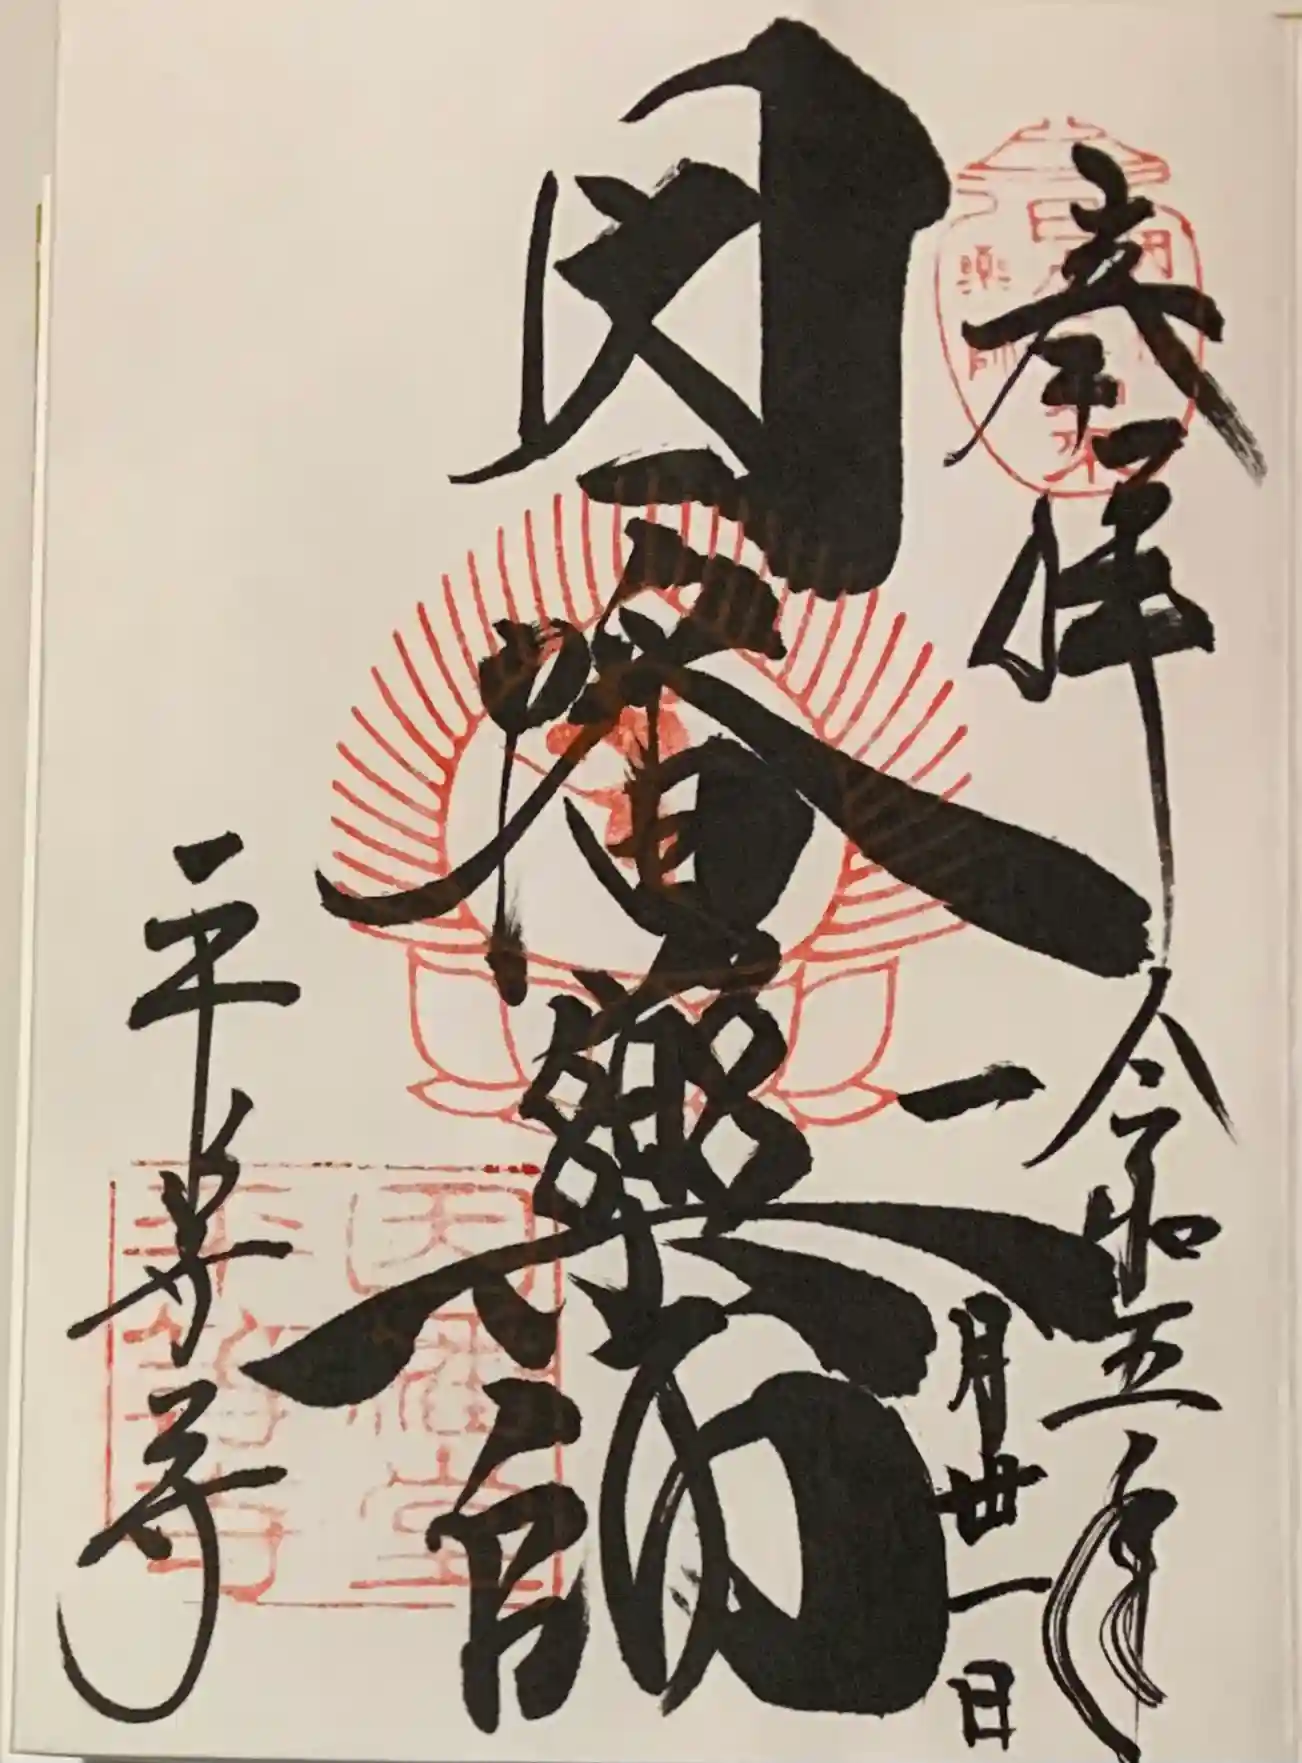 奉拝
令和五年
一月卅一日
因幡薬師
平等寺
因幡堂
平等寺